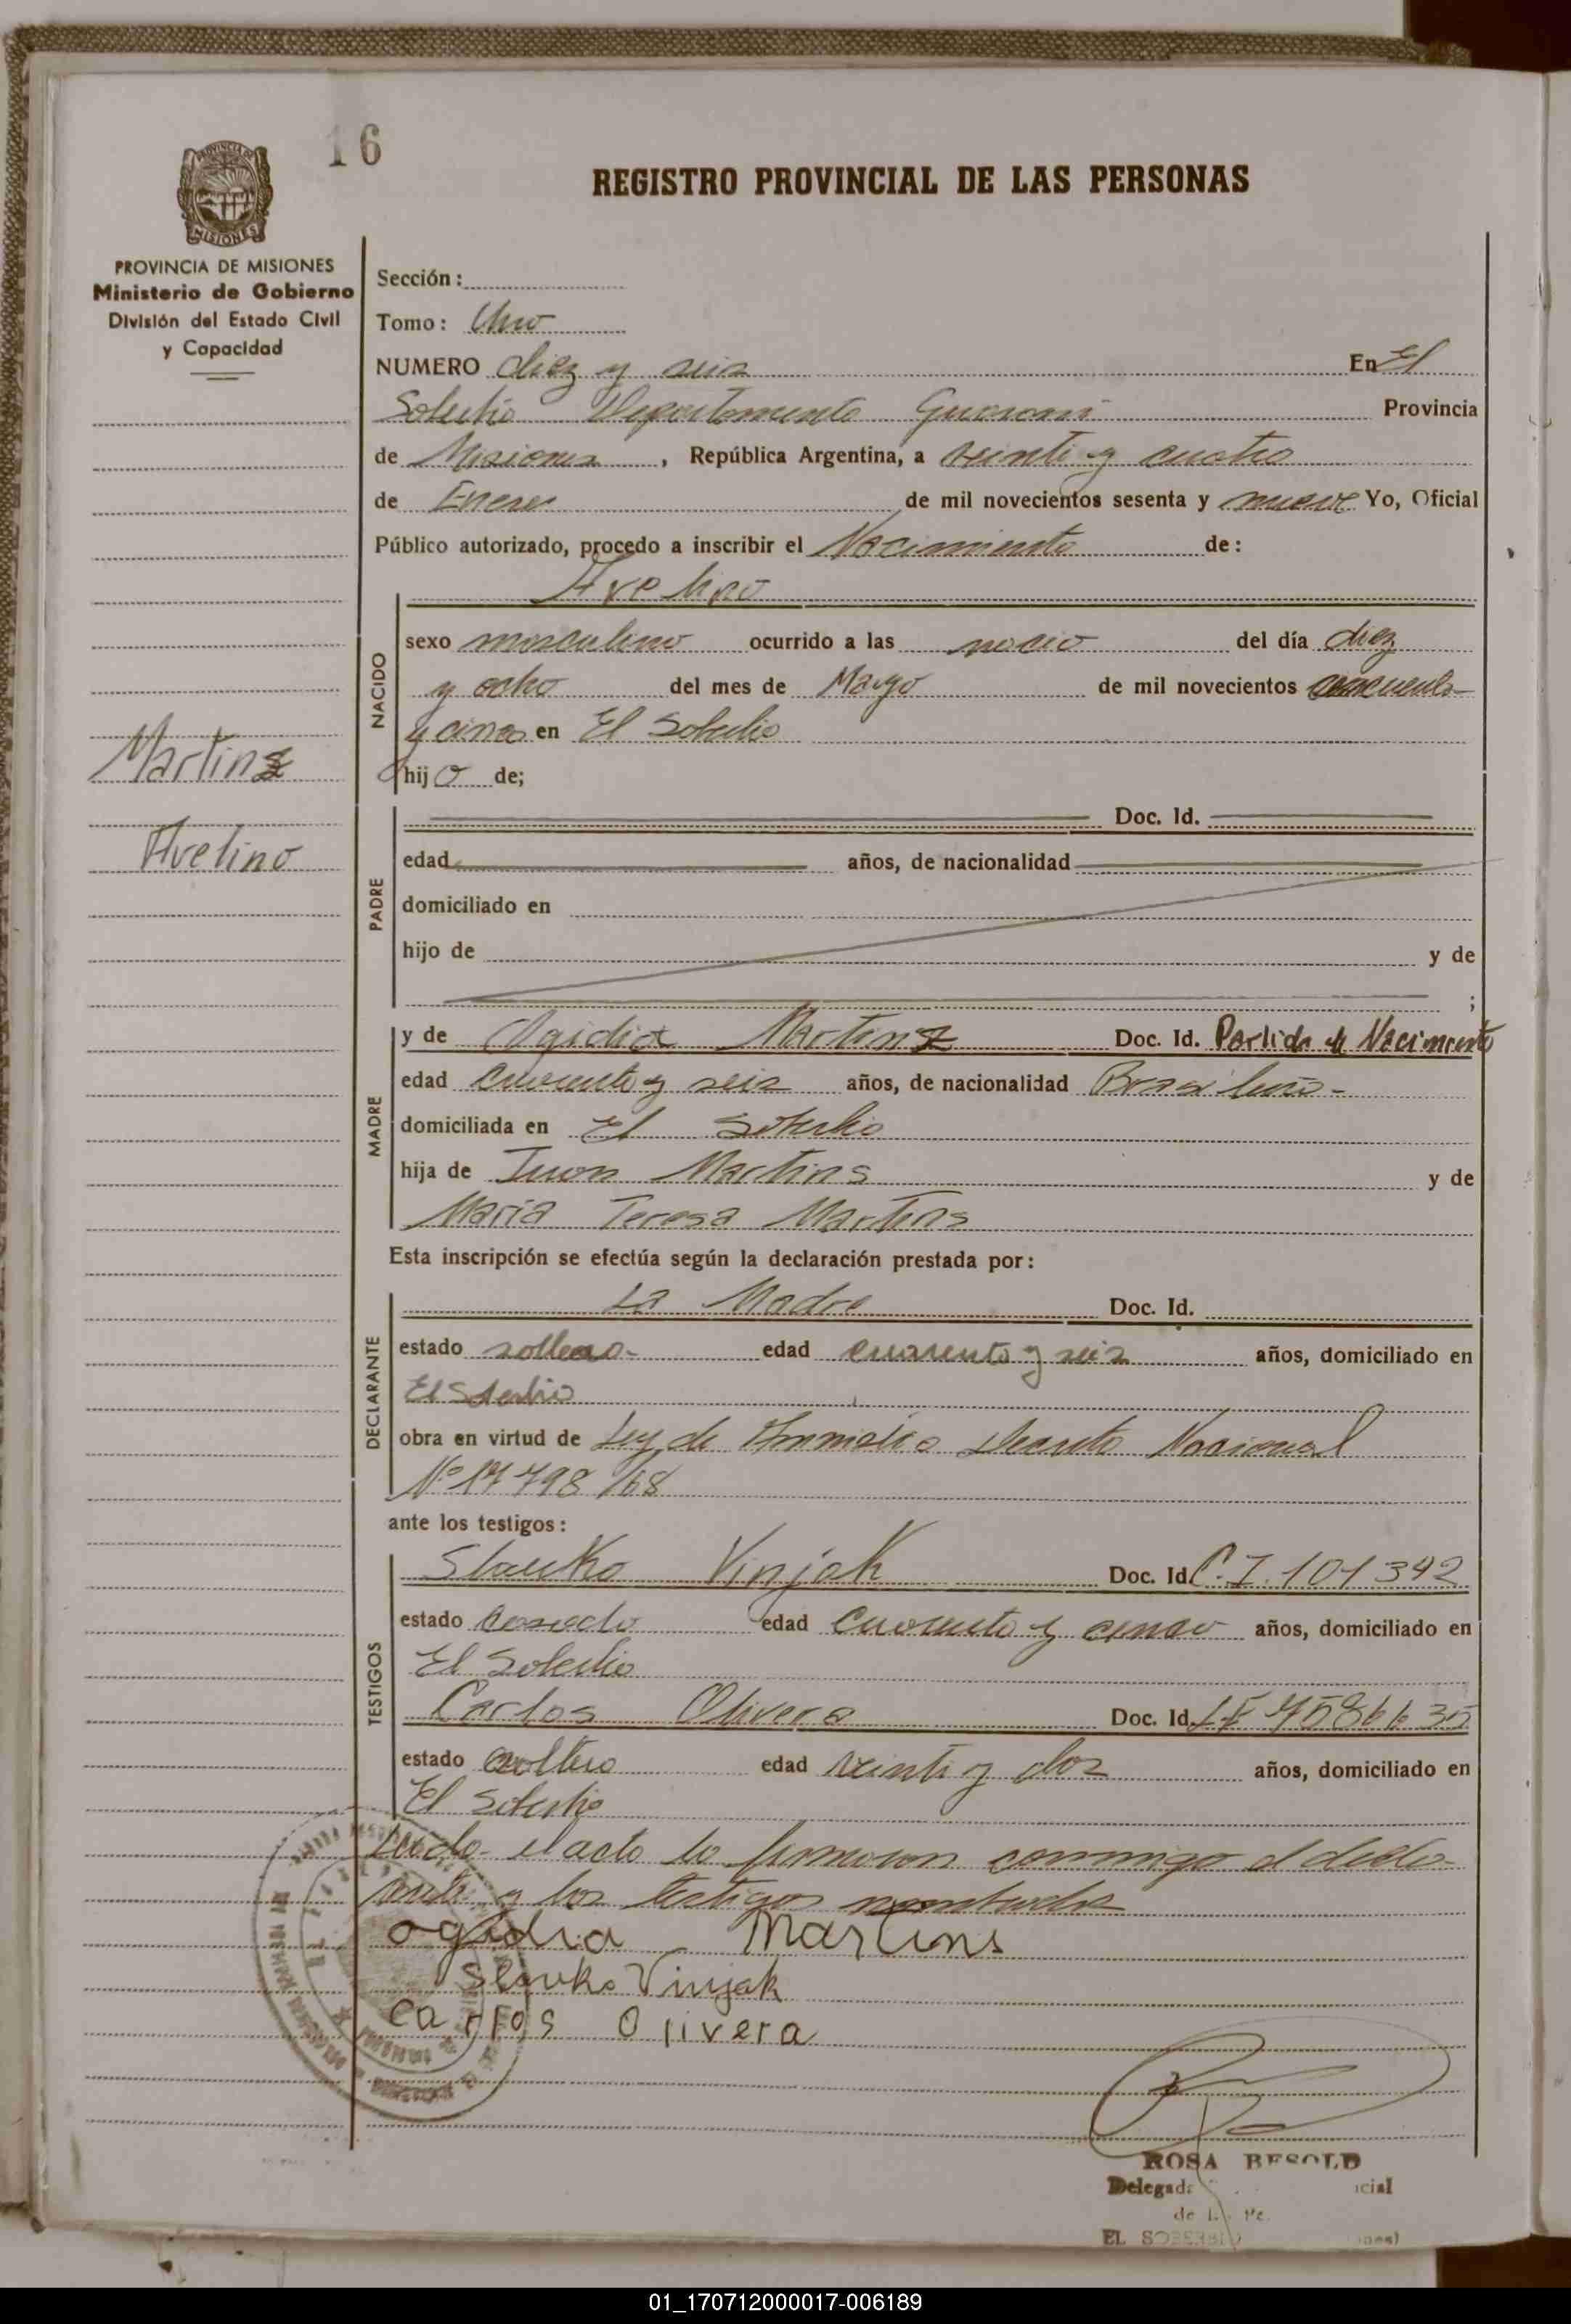 16
REGISTRO PROVINCIAL DE LAS PERSONAS
PROVINCIA DE MISIONES
Ministerio de Gobierno
División del Estado Civil
y Capacidad
Sección:
Tomo: Uno
NUMERO diez y seis En El
Soberbio Departamento Guarani Provincia
de Misiones, República Argentina, a veinte y cuatro
de Enero de mil novecientos sesenta y nueve Yo, Oficial
Público autorizado, procedo a inscribir el Nacimiento de:
Avelino
NACIDO
sexo masculino ocurrido a las nació del día diez
y ocho del mes de Mayo de mil novecientos cincuenta
y cinco en El Soberbio
hijo de;
Martins
Avelino
PADRE
Doc. Id.
edad años, de nacionalidad
domiciliado en
hijo de y de
;
MADRE
y de Ogidia Martins Doc. Id. Partida de Nacimiento
edad cuarenta y seis años, de nacionalidad Brasileña-
domiciliada en El Soberbio
hija de Juan Martins y de
Maria Teresa Martins
Esta inscripción se efectúa según la declaración prestada por:
DECLARANTE
La Madre Doc. Id.
estado edad cuarenta y seis años, domiciliado en
El Soberbio
obra en virtud de Ley de Amnistia Decreto Nacional
Nº 17798/68
ante los testigos:
TESTIGOS
Slauko Vinjak Doc. Id. C.I. 101342
estado casado edad cuarenta y cinco años, domiciliado en
El Soberbio
Carlos Olivera Doc. Id. LE
estado soltero edad veinte y dos años, domiciliado en
El Soberbio
Leido el acto lo firmaron conmigo el decla-
rante y los testigos nombrados
ogidia Martins
Slauko Vinjak
carlos Olivera
ROSA BESOLD
Delegada
EL SOBERBIO
01_170712000017-006189